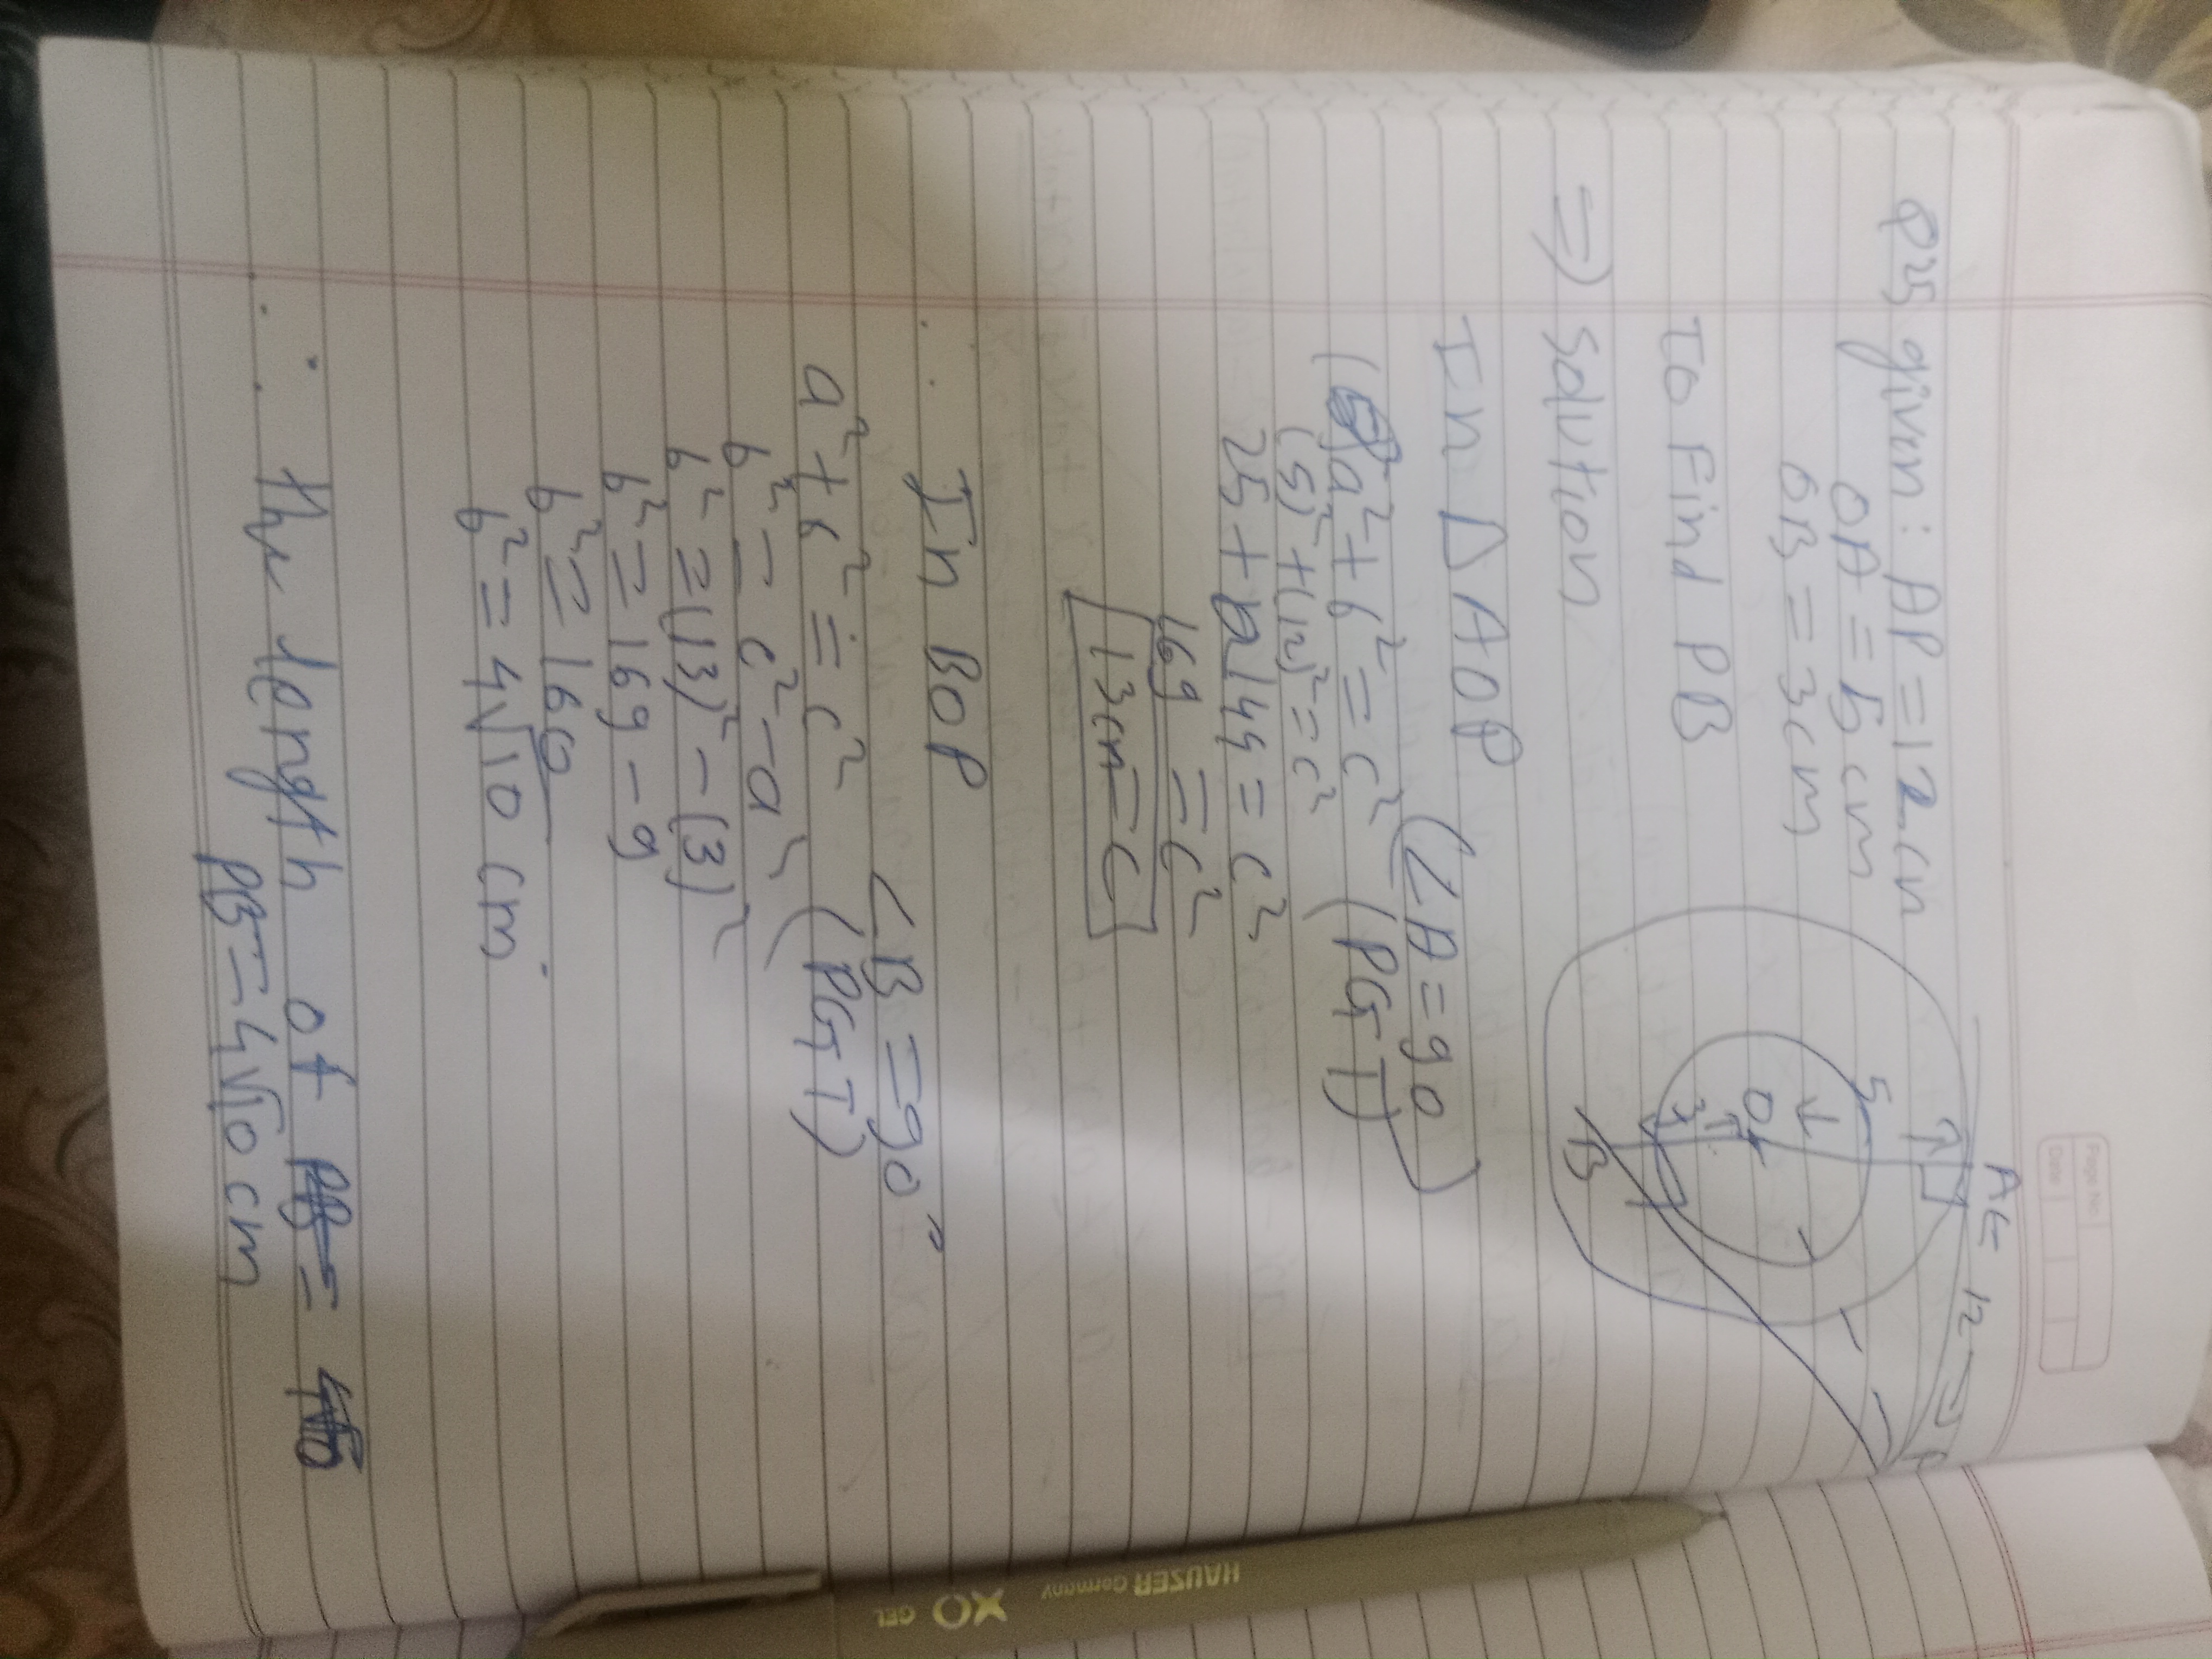 Page No.
Date
Q25 given: AP = 12cm
OA = 5cm
OB = 3cm
To Find PB
A ← 12 → P
5
O
3
B
⇒ Solution
In Δ AOP (∠A = 90)
a² + b² = c² (PGT)
(5)² + (12)² = c²
25 + 144 = c²
169 = c²
13cm = c
∴ In BOP ∠B = 90°
a² + b² = c² (PGT)
b² = c² - a²
b² = (13)² - (3)²
b² = 169 - 9
b² = 160
b² = 4√10 cm
∴ The length of
PB = 4√10 cm
HAUSER Germany
XO GEL